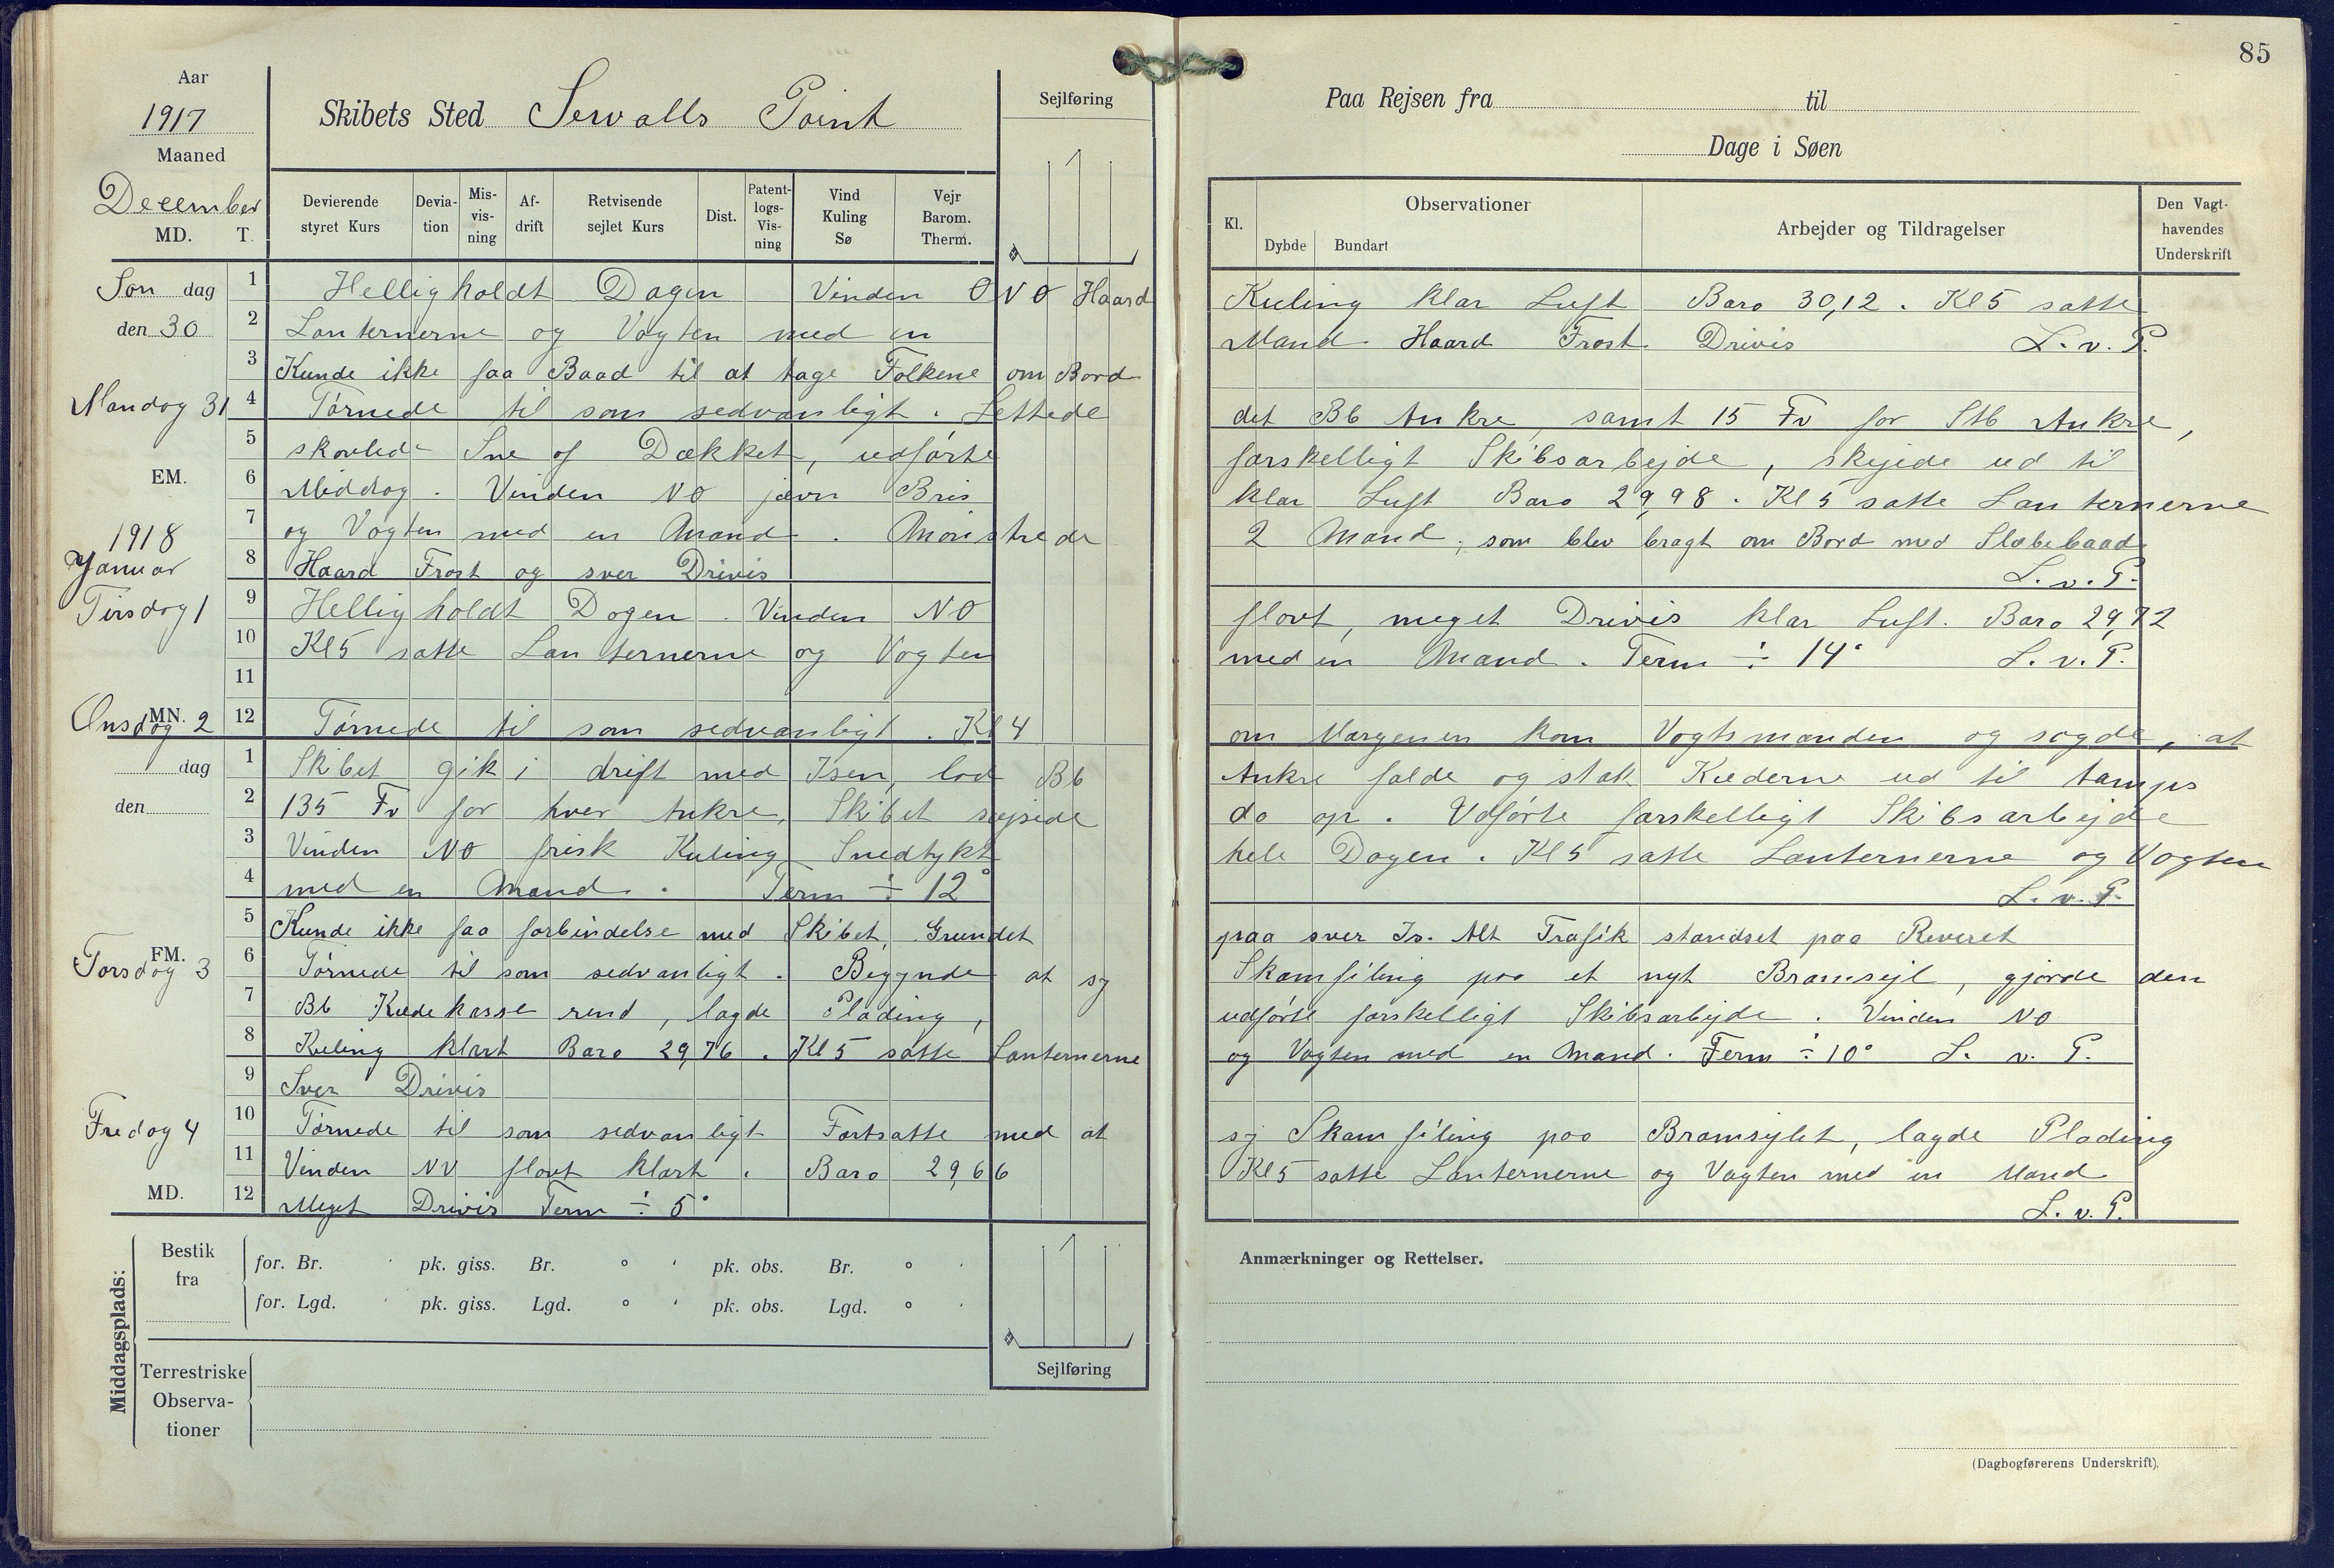 85
Aar
1917
Maaned
December
MD. T.
Skibets Sted Sewalls Point
Sejlføring
Paa Rejsen fra til
Dage i Søen
Devierende styret Kurs
Deviation
Misvisning
Afdrift
Retvisende sejlet Kurs
Dist.
Patentlogs-Visning
Vind Kuling Sø
Vejr Barom. Therm.
Kl.
Observationer
Dybde Bundart
Arbejder og Tildragelser
Den Vagthavendes Underskrift
Søn dag 1 Helligholdt Dagen Vinden ONO Haard Kuling klar Luft Baro 30,12. Kl 5 satte
den 30 2 Lanternerne og Vagten med en Mand. Haard Frost. Drivis L. v. P.
3 Kunde ikke faa Baad til at tage Folkene om Bord
Mandag 31 4 Tørnede til som sedvanligt. Lettede det Bb Ankre, samt 15 Fv for Stb Ankre,
5 skovlede Sne af Dækket, udførte forskelligt Skibsarbejde, skejede ud til
EM. 6 Middag. Vinden NO jævn Bris klar Luft Baro 29,98. Kl 5 satte Lanternerne
7 og Vagten med en Mand. Mønstrede 2 Mand, som blev bragt om Bord med Slæbebaad
1918
Januar 8 Haard Frost og svær Drivis L. v. P.
Tirsdag 1 9 Helligholdt Dagen. Vinden NO flovt, meget Drivis klar Luft. Baro 29,72
10 Kl 5 satte Lanternerne og Vagten med en Mand. Term ÷ 14° L. v. P.
11
Onsdag 2 MN. 12 Tørnede til som sedvanligt. Kl 4 om Morgenen kom Vagtsmanden og sagde, at
dag 1 Skibet gik i drift med Isen, lod Bb Ankre falde og stak Kæderne ud til tamps
den 2 135 Fv for hver Ankre, Skibet svejede da op. Udførte forskelligt Skibsarbejde
3 Vinden NO frisk Kuling Snedtykt hele Dagen. Kl 5 satte Lanternerne og Vagten
4 med en Mand. Term ÷ 12° L. v. P.
5 Kunde ikke faa forbindelse med Skibet, Grundet paa svær Is. Alt Trafik standset paa Reveret
Torsdag 3 FM. 6 Tørnede til som sedvanligt. Begynde at sy Skamfiling paa et nyt Bramsejl, gjorde den
7 Bb Kædekasse rend, lagde Plading, udførte forskelligt Skibsarbejde. Vinden NO
8 Kuling klart Baro 29,76. Kl 5 satte Lanternerne og Vagten med en Mand. Term ÷ 10° L. v. P.
9 Svær Drivis
Fredag 4 10 Tørnede til som sedvanligt Fortsatte med at sy Skamfiling paa Bramsejlet, lagde Plading
11 Vinden NV flovt klart. Baro 29,66 Kl 5 satte Lanternerne og Vagten med en Mand
MD. 12 Meget Drivis Term ÷ 5° L. v. P.
Middagsplads:
Bestik fra
for. Br. ' pk. giss. Br. ° ' pk. obs. Br. ° '
for. Lgd. ' pk. giss. Lgd. ° ' pk. obs. Lgd. ° '
Sejlføring
Terrestriske Observationer
Anmærkninger og Rettelser.
(Dagbogførerens Underskrift).